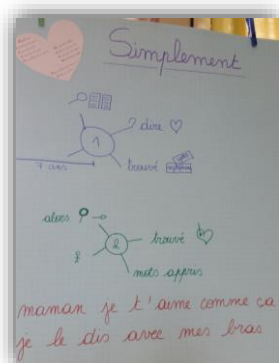 Simplement
? dire
1
7 ans
trouvé
alors ?
2
trouvé
mots appris
maman je t'aime comme ça
je le dis avec mes bras